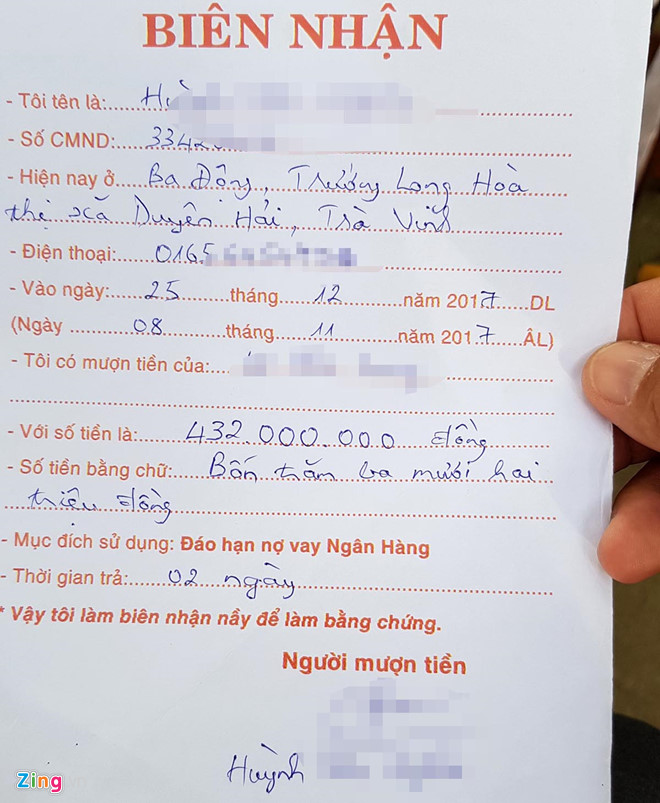 BIÊN NHẬN
- Tôi tên là:
- Số CMND: 334
- Hiện nay ở Ba Động, Trường Long Hoà
thị xã Duyên Hải, Trà Vinh
- Điện thoại: 0165
- Vào ngày: 25 tháng 12 năm 2017 DL
(Ngày 08 tháng 11 năm 2017 ÂL)
- Tôi có mượn tiền của:
- Với số tiền là: 432.000.000 đồng
- Số tiền bằng chữ: Bốn trăm ba mươi hai
triệu đồng
- Mục đích sử dụng: Đáo hạn nợ vay Ngân Hàng
- Thời gian trả: 02 ngày
* Vậy tôi làm biên nhận nầy để làm bằng chứng.
Người mượn tiền
Huỳnh
Zing